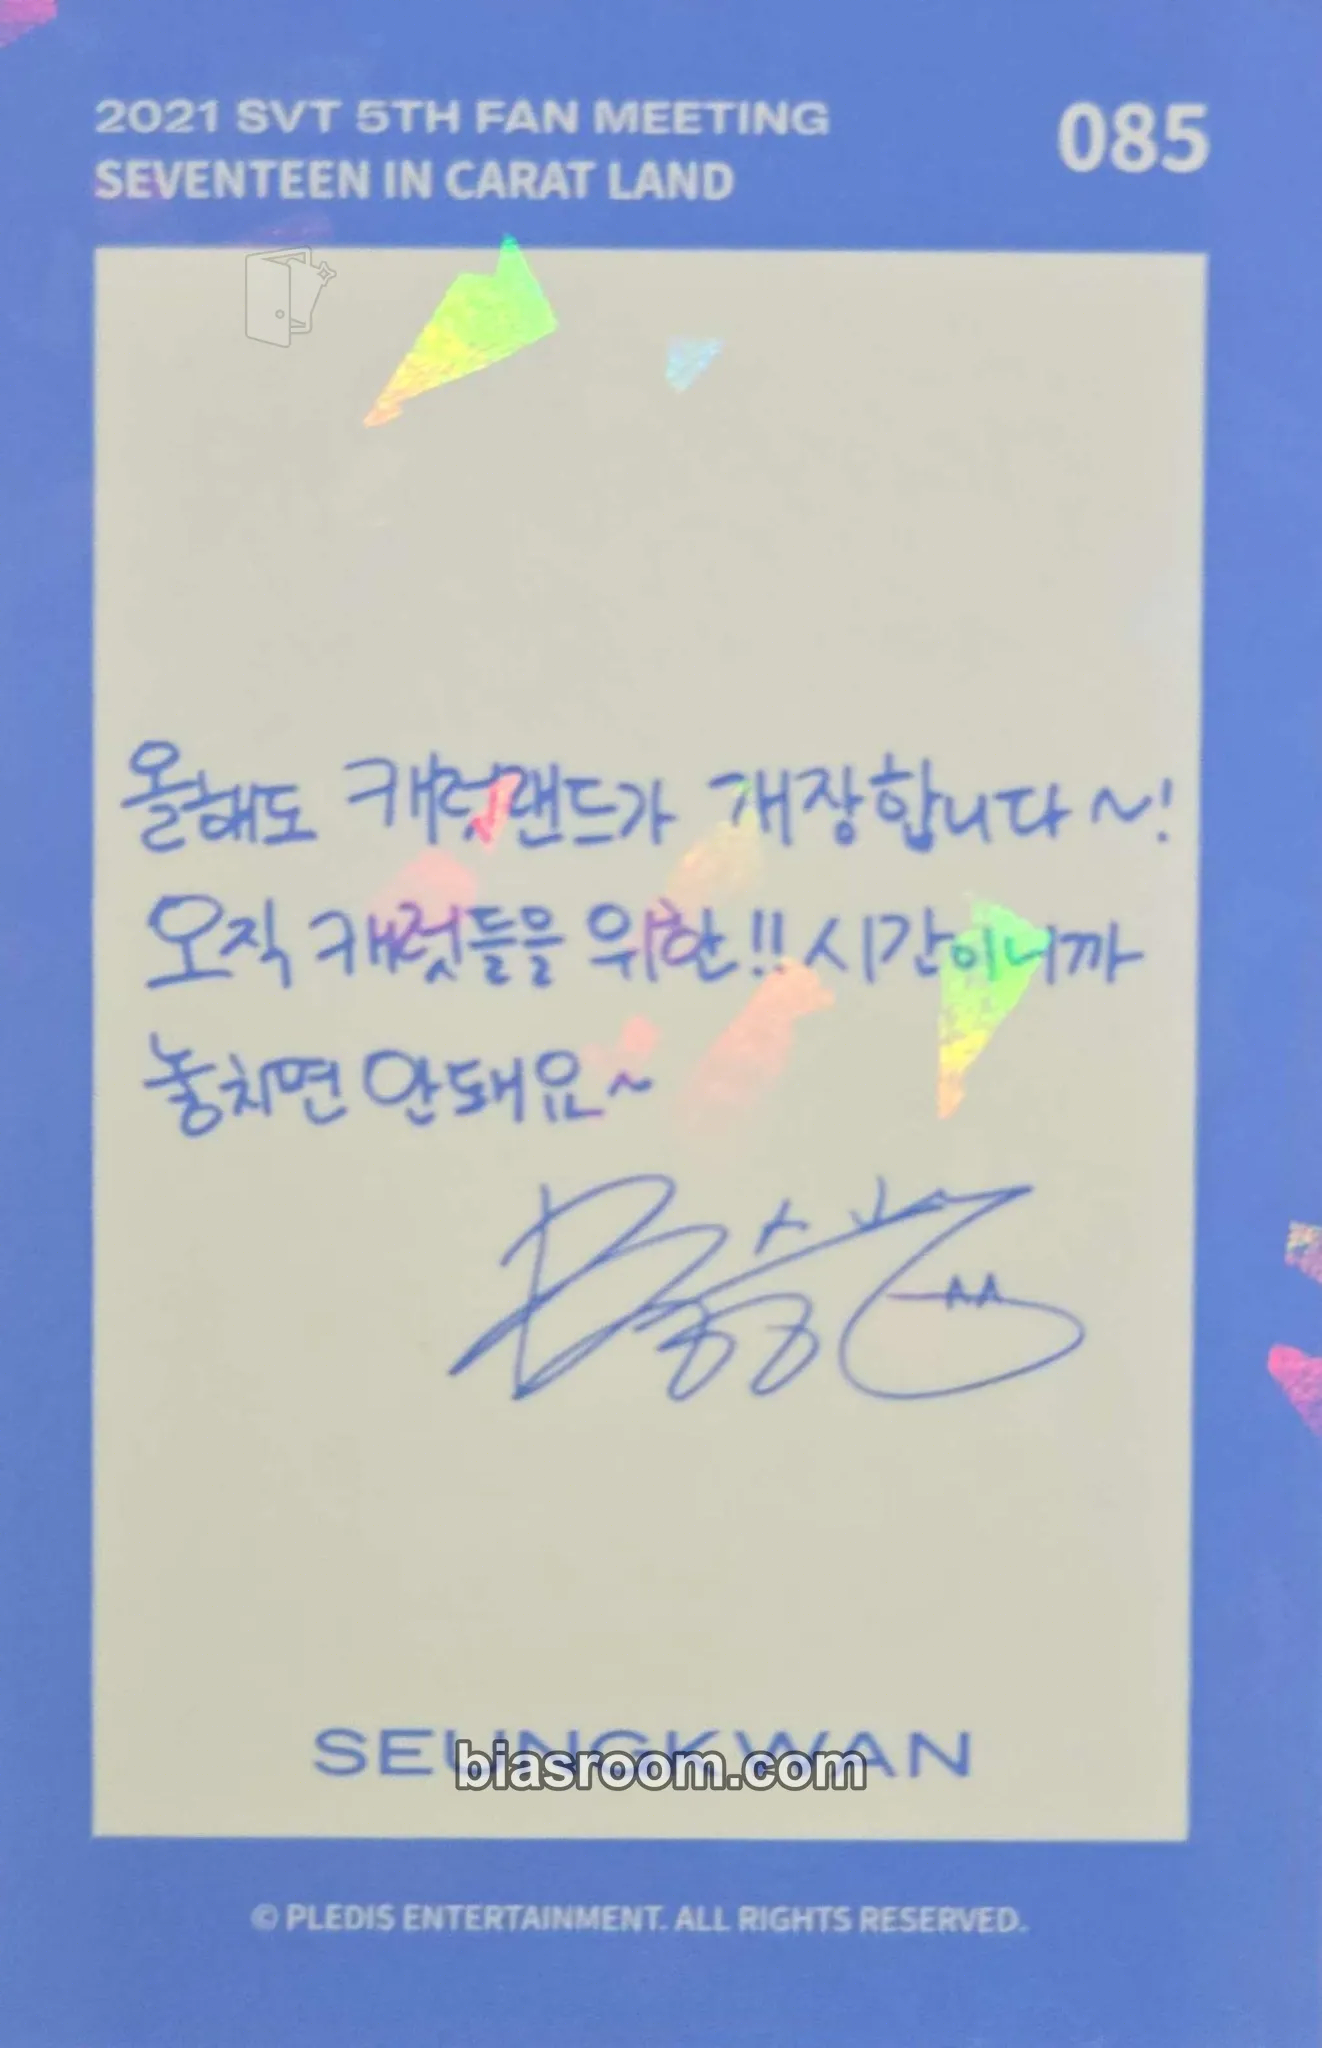 2021 SVT 5TH FAN MEETING
SEVENTEEN IN CARAT LAND
085
올해도 캐럿랜드가 개장합니다~!
오직 캐럿들을 위한!! 시간이니까
놓치면 안돼요~
SEUNGKWAN
biasroom.com
© PLEDIS ENTERTAINMENT. ALL RIGHTS RESERVED.